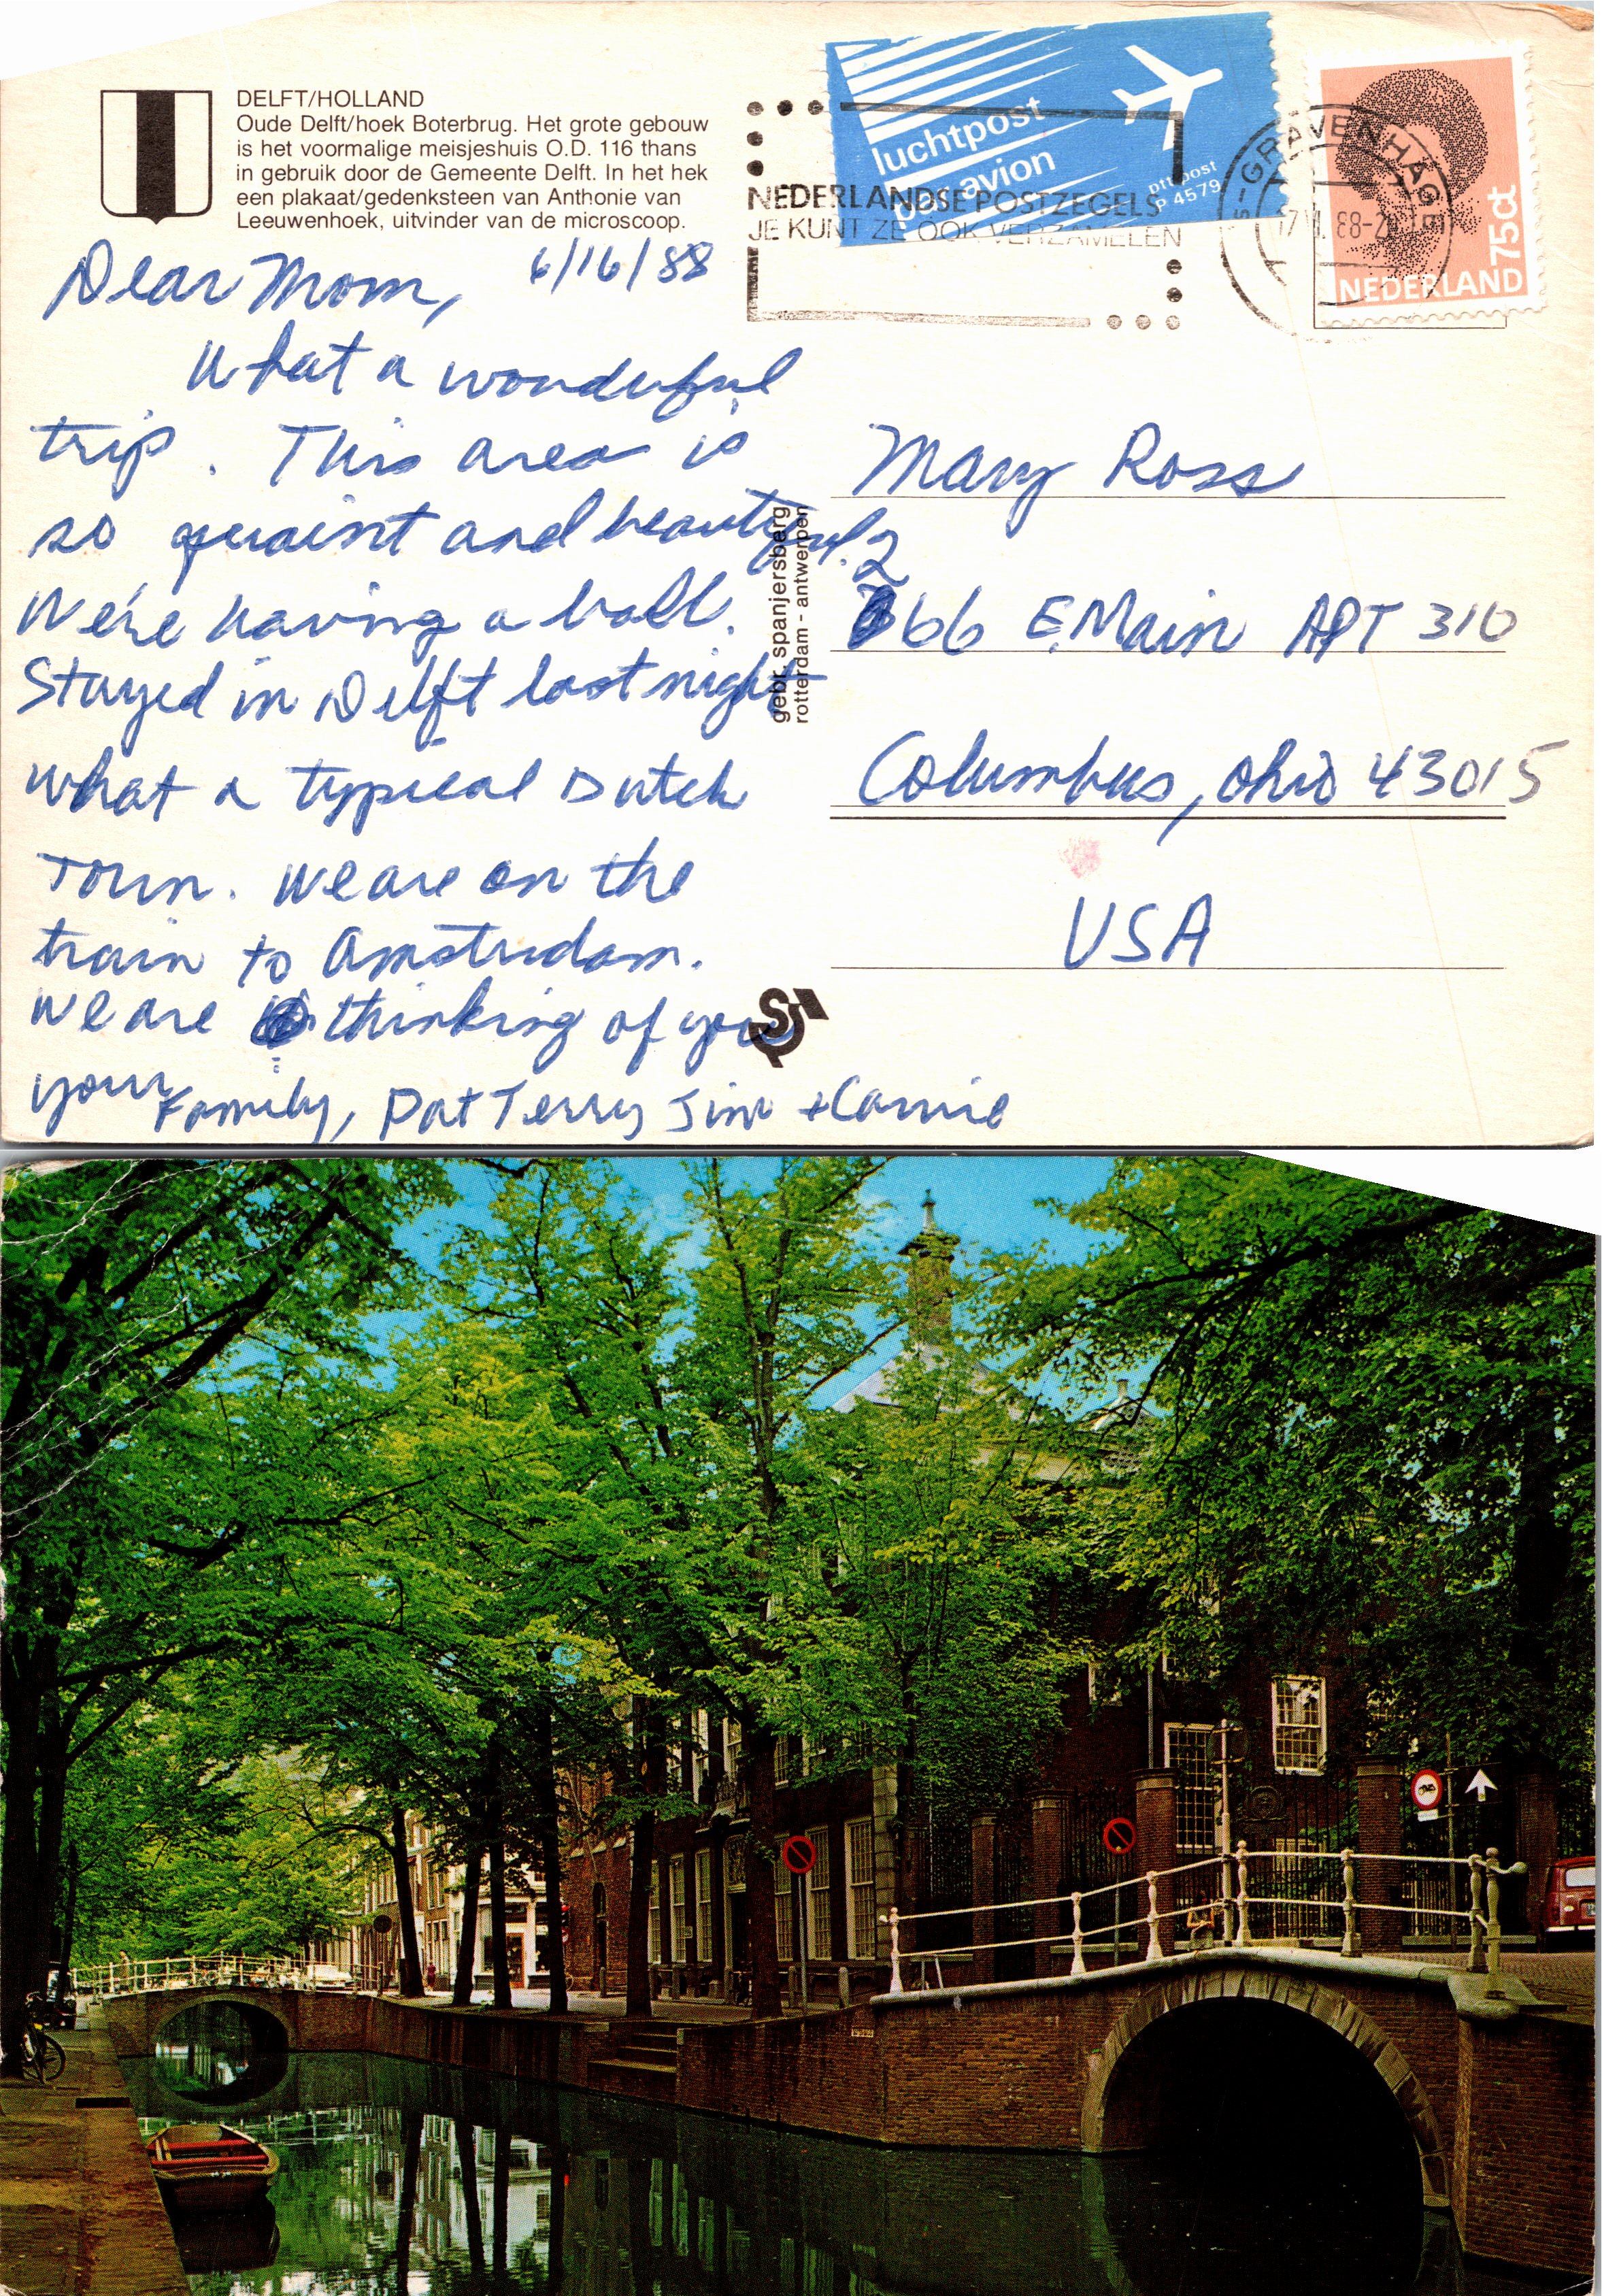 DELFT/HOLLAND
Oude Delft/hoek Boterbrug. Het grote gebouw
is het voormalige meisjeshuis O.D. 116 thans
in gebruik door de Gemeente Delft. In het hek
een plakaat/gedenksteen van Anthonie van
Leeuwenhoek, uitvinder van de microscoop.
luchtpost
par avion
ptt post
P 4579
NEDERLANDSE POSTZEGELS
JE KUNT ZE OOK VERZAMELEN
'S-GRAVENHAGE
75ct
NEDERLAND
6/16/88
Dear Mom,
What a wonderful
trip. This area is
so quaint and beautiful.
We're having a ball.
Stayed in Delft last night
what a typical Dutch
Town. We are on the
train to Amsterdam.
We are thinking of you
your Family, Pat Terry Jim + Carrie
gebr. spanjersberg
rotterdam - antwerpen
Mary Ross
266 E. Main APT 310
Columbus, Ohio 43015
USA